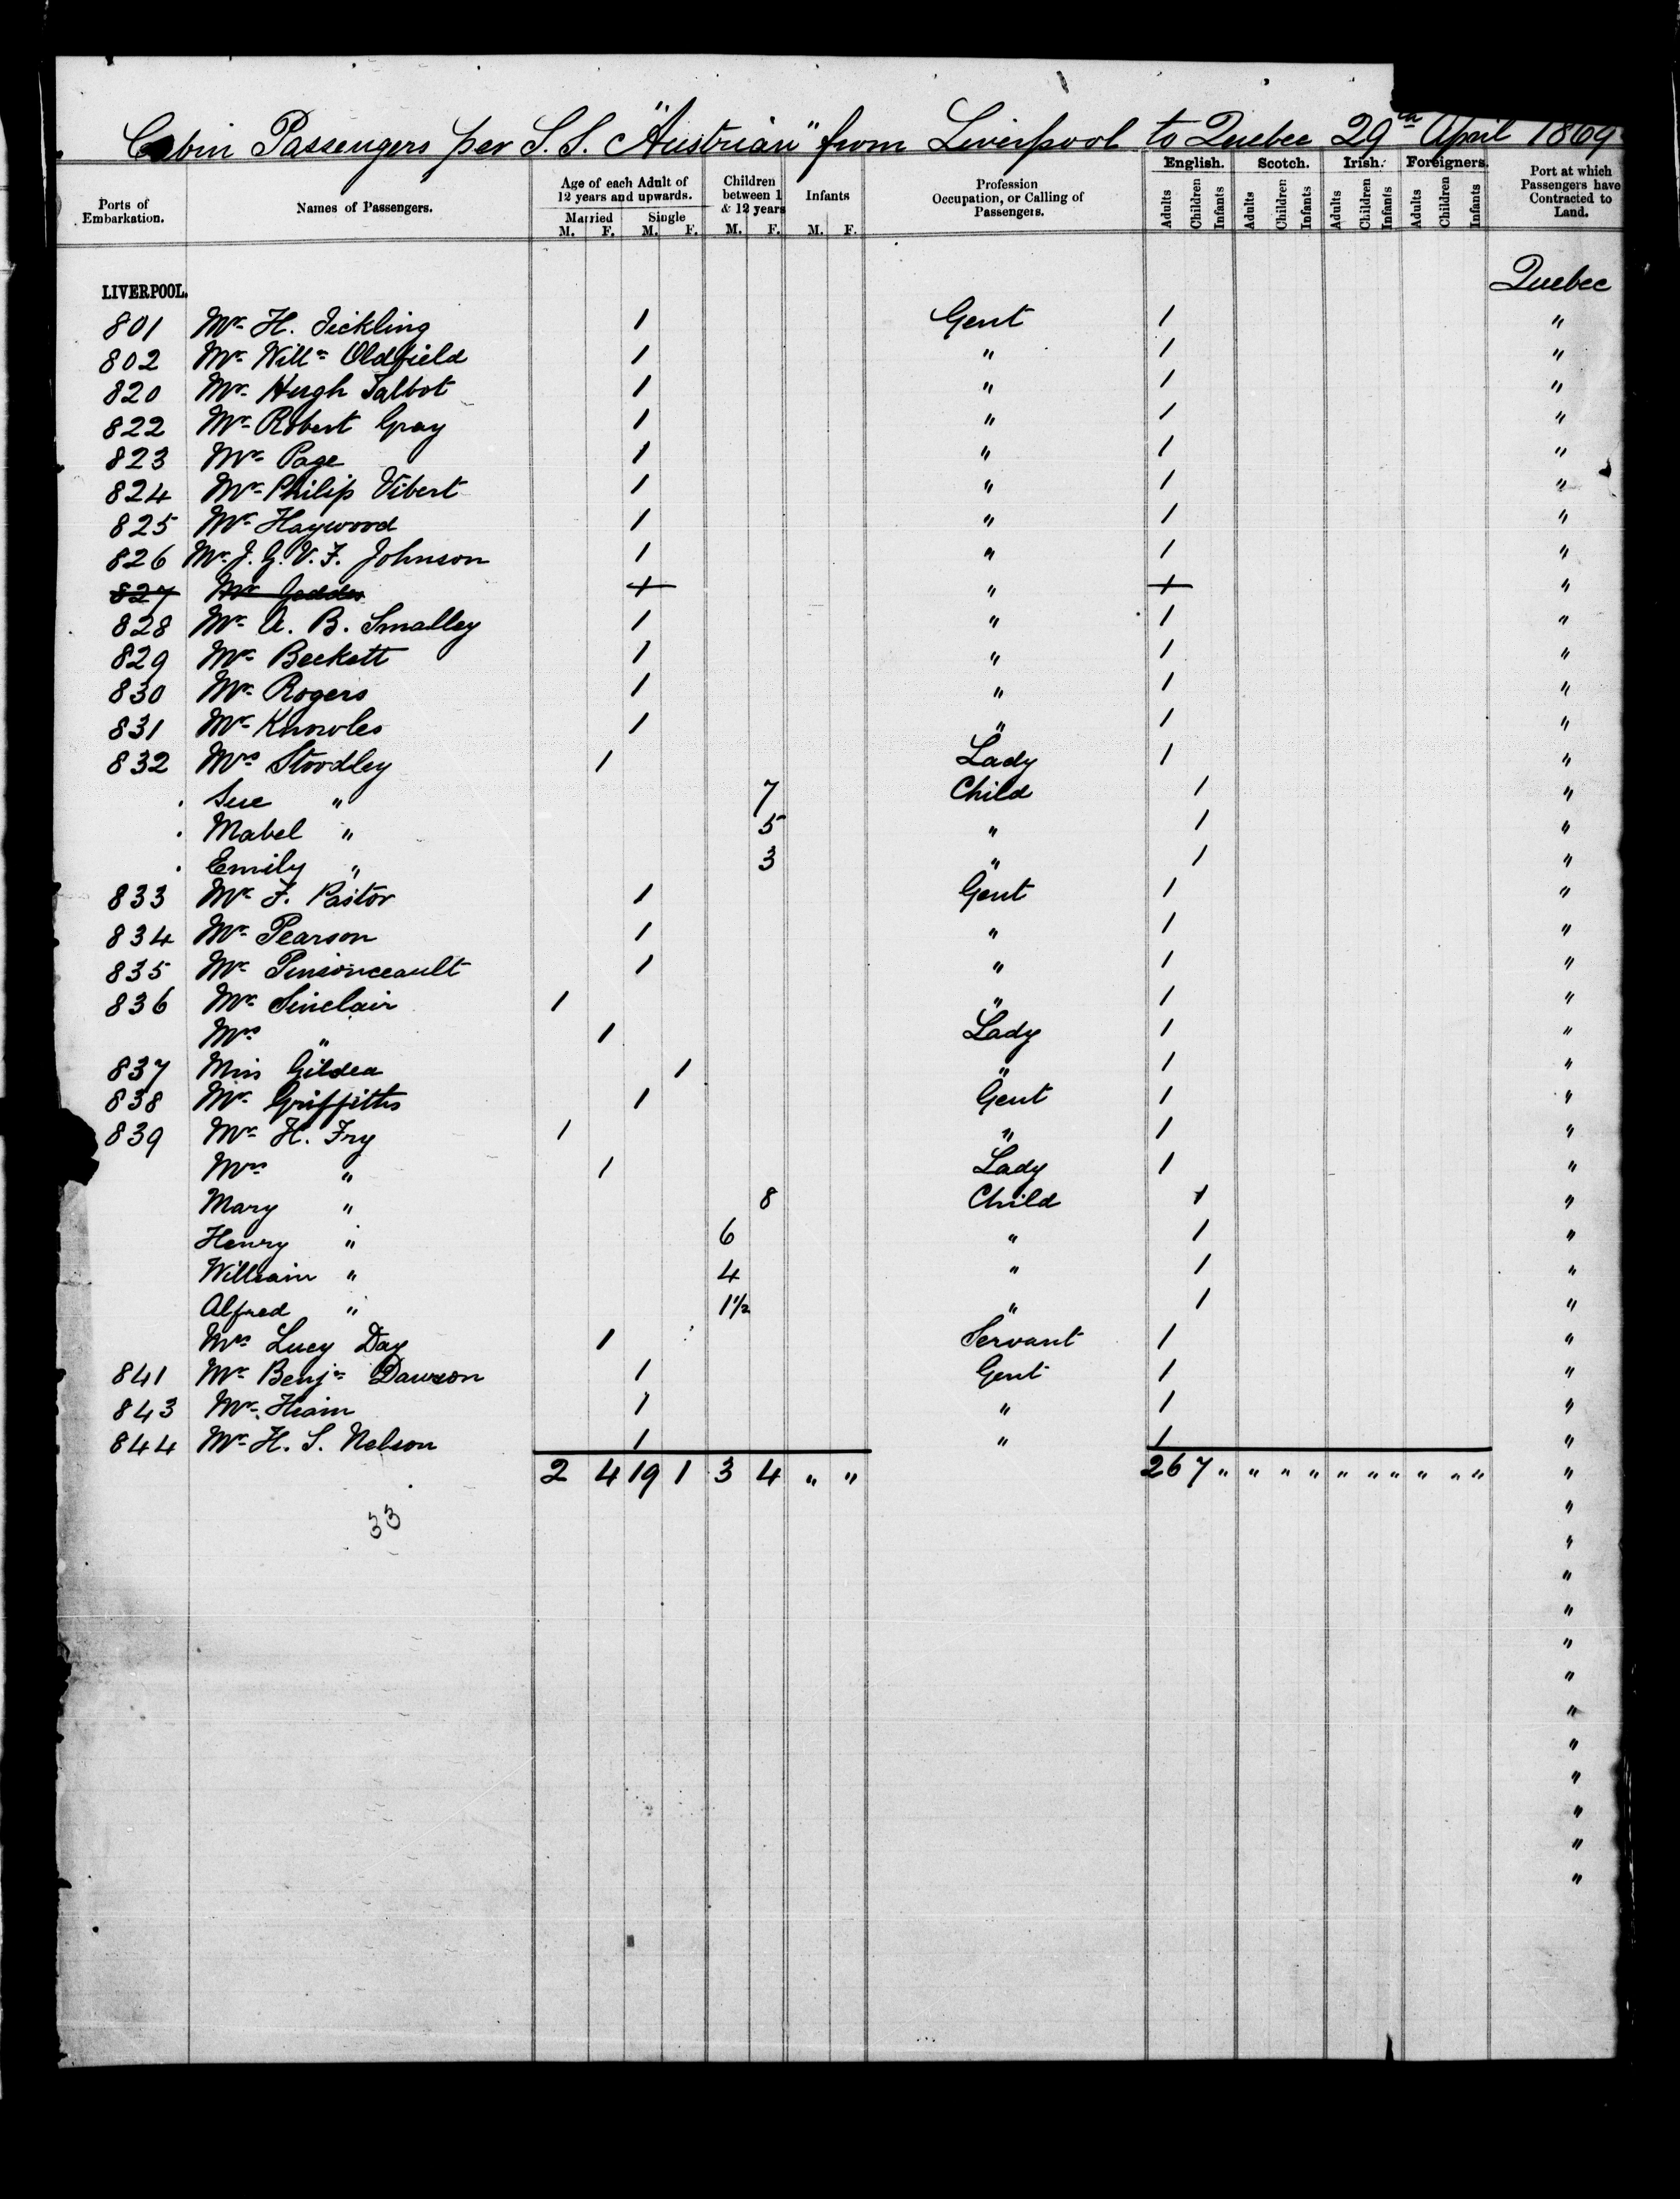 Cabin Passengers per S.S. "Austrian" from Liverpool to Quebec 29th April 1869
Ports of Embarkation. Names of Passengers. Age of each Adult of 12 years and upwards. Children between 1 & 12 years Infants Profession Occupation, or Calling of Passengers. English. Scotch. Irish. Foreigners. Port at which Passengers have Contracted to Land.
Married Single
M. F. M. F. M. F. M. F. Adults Children Infants Adults Children Infants Adults Children Infants Adults Children Infants
LIVERPOOL. Quebec
801 Mr H. Tickling 1 Gent 1 "
802 Mr Willm Oldfield 1 " 1 "
820 Mr Hugh Talbot 1 " 1 "
822 Mr Robert Gray 1 " 1 "
823 Mr Page 1 " 1 "
824 Mr Philip Vibert 1 " 1 "
825 Mr Haywood 1 " 1 "
826 Mr J. G. V. F. Johnson 1 " 1 "
827 Mr Geddes 1 " 1 "
828 Mr A. B. Smalley 1 " 1 "
829 Mr Beckett 1 " 1 "
830 Mr Rogers 1 " 1 "
831 Mr Knowles 1 " 1 "
832 Mrs Stoodley 1 Lady 1 "
Sue " 7 Child 1 "
Mabel " 5 " 1 "
Emily " 3 " 1 "
833 Mr F. Pastor 1 Gent 1 "
834 Mr Pearson 1 " 1 "
835 Mr Pinsonceault 1 " 1 "
836 Mr Sinclair 1 " 1 "
Mrs " 1 Lady 1 "
837 Miss Gildea 1 " 1 "
838 Mr Griffiths 1 Gent 1 "
839 Mr H. Fry 1 " 1 "
Mrs " 1 Lady 1 "
Mary " 8 Child 1 "
Henry " 6 " 1 "
William " 4 " 1 "
Alfred " 1½ " 1 "
Mrs Lucy Day 1 Servant 1 "
841 Mr Benjn Dawson 1 Gent 1 "
843 Mr Hiam 1 " 1 "
844 Mr H. S. Nelson 1 " 1 "
2 4 19 1 3 4 " " 26 7 " " " " " " " " " " "
33 "
"
"
"
"
"
"
"
"
"
"
"